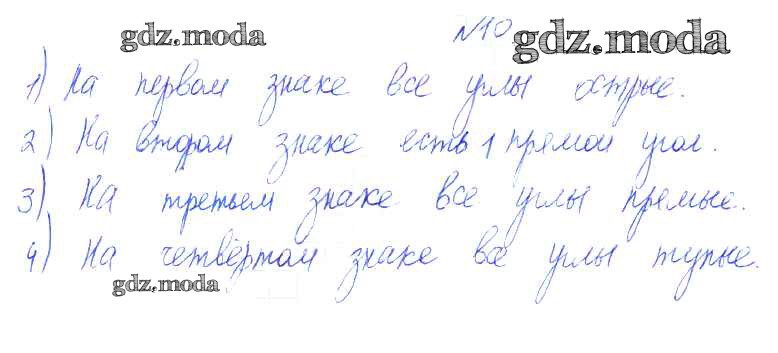 gdz.moda №10 gdz.moda
1) На первом знаке все углы острые.
2) На втором знаке есть 1 прямой угол.
3) На третьем знаке все углы прямые.
4) На четвёртом знаке все углы тупые.
gdz.moda